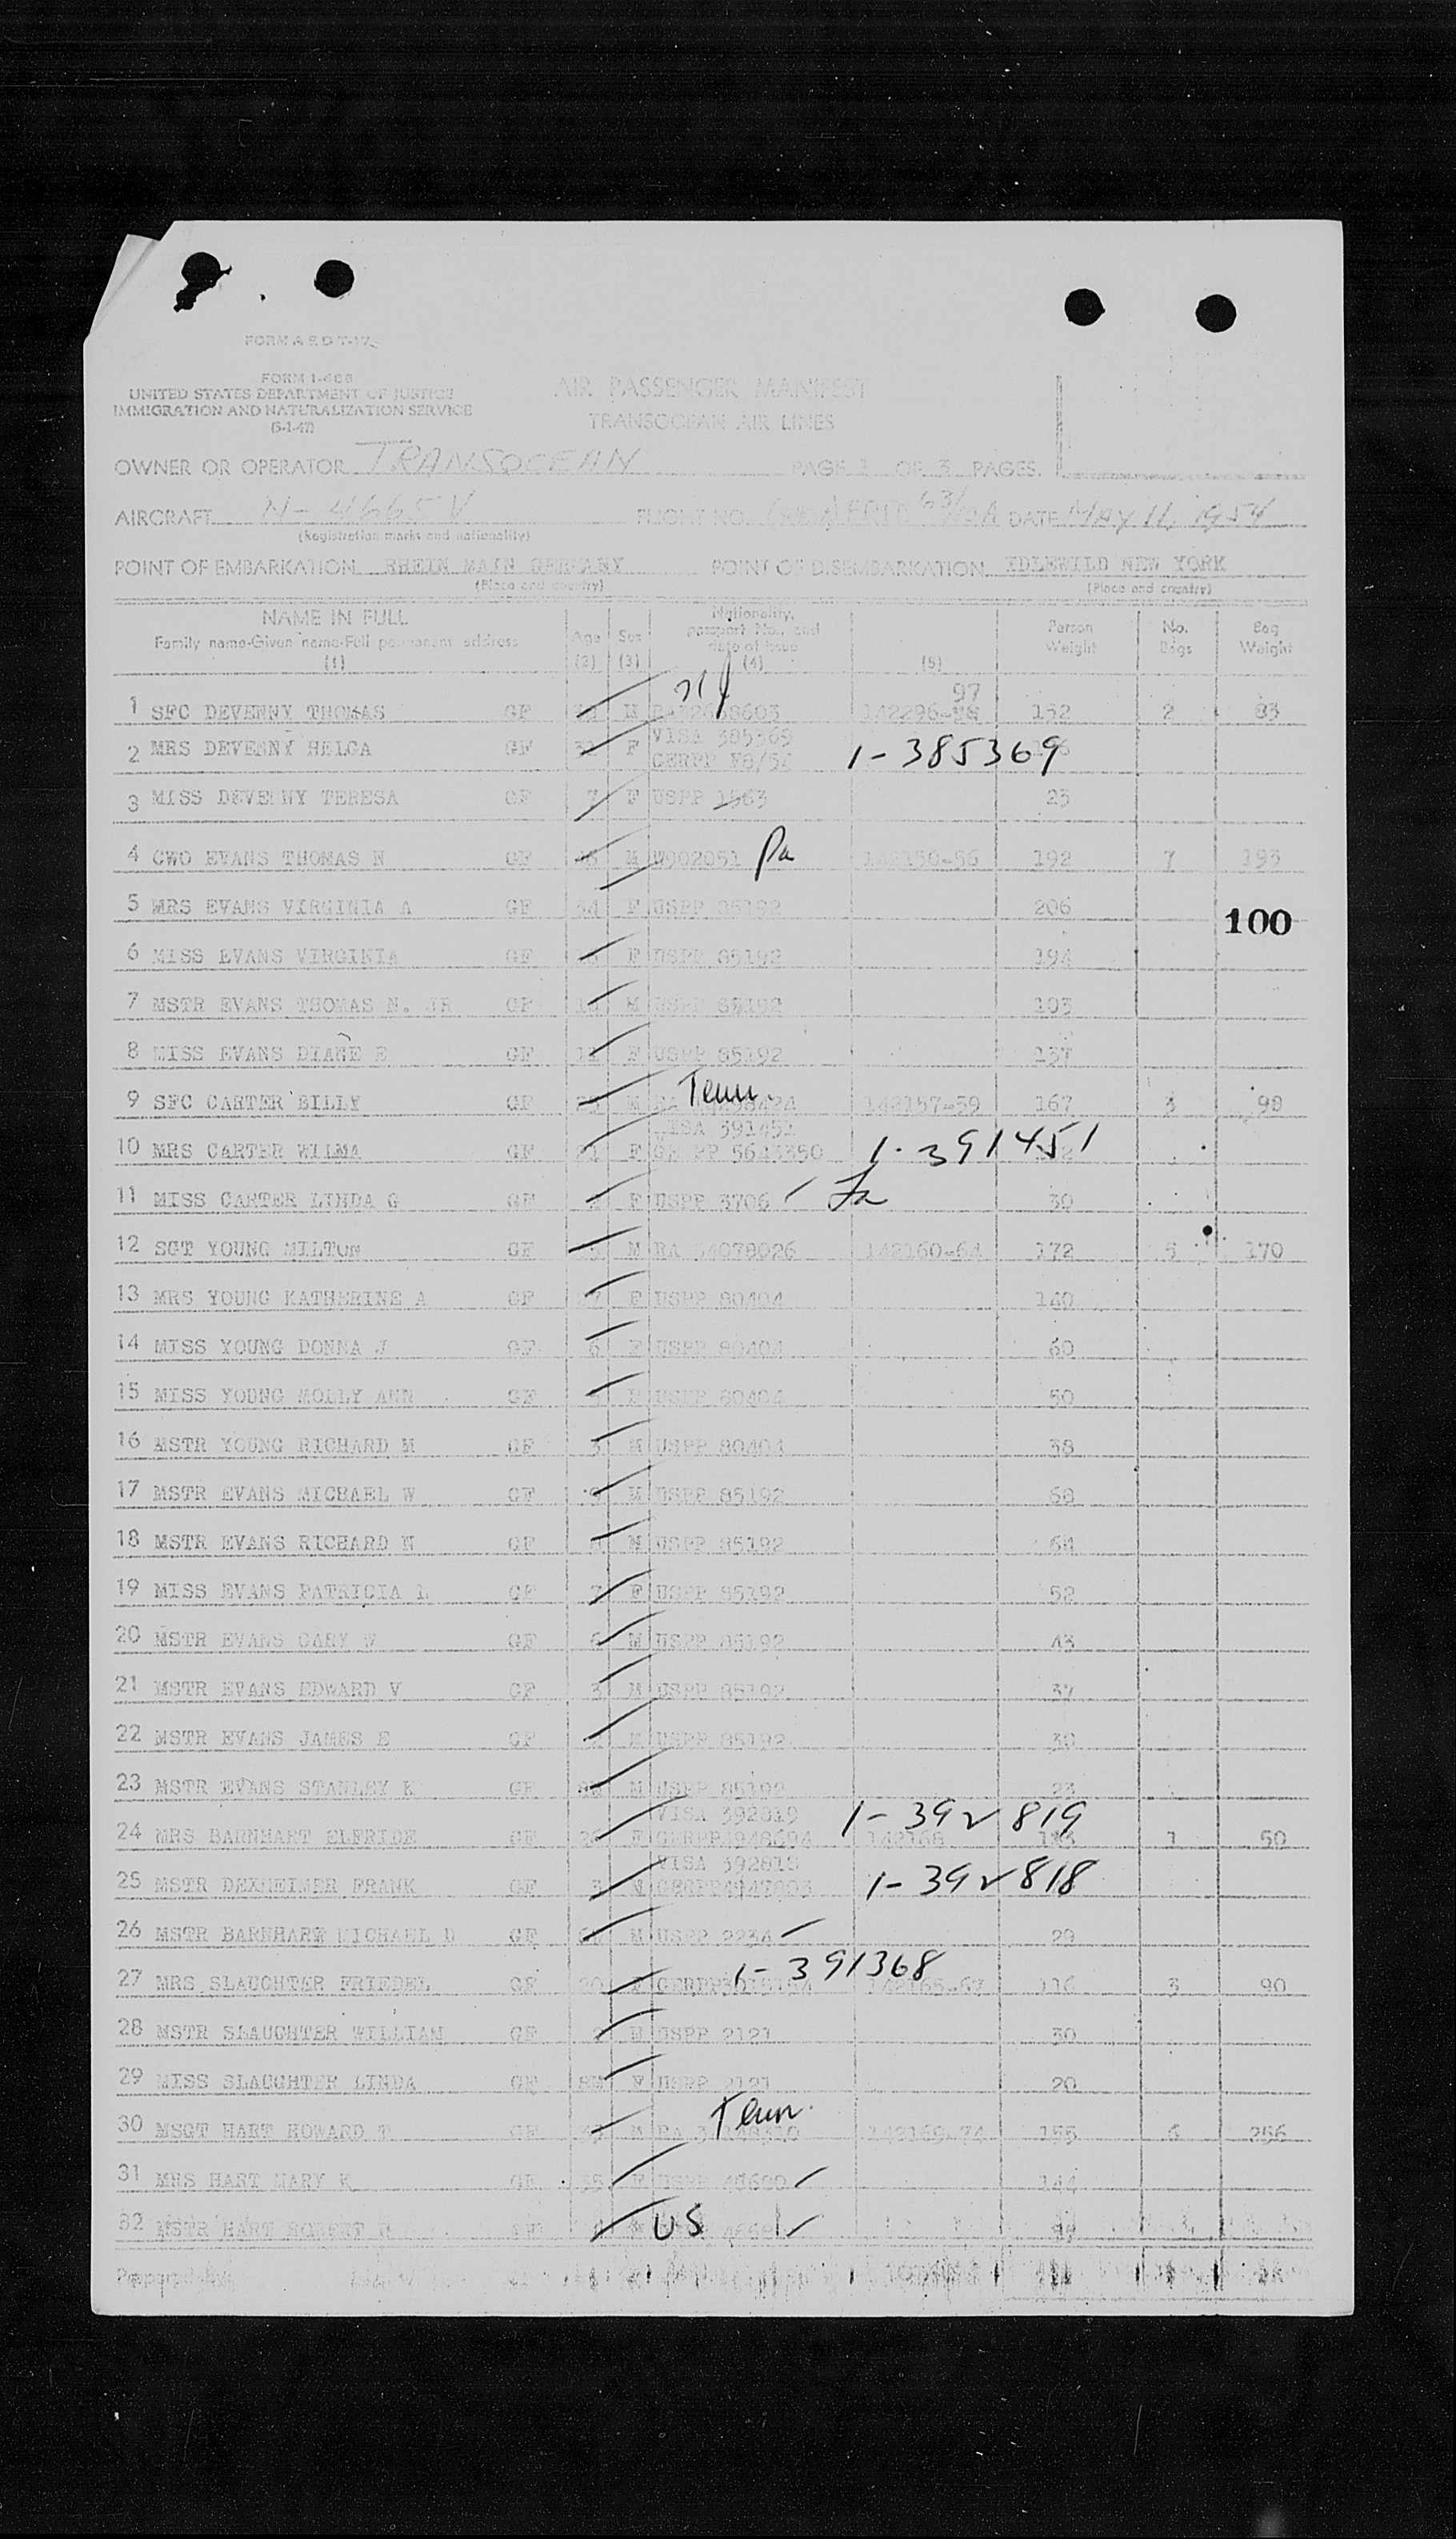 FORM 1-466
UNITED STATES DEPARTMENT OF JUSTICE
IMMIGRATION AND NATURALIZATION SERVICE
(5-1-47)
AIR PASSENGER MANIFEST
TRANSOCEAN AIR LINES
OWNER OR OPERATOR TRANSOCEAN PAGE 1 OF 3 PAGES.
AIRCRAFT N-4665V FLIGHT NO. DATE MAY 11, 1954
(Registration marks and nationality)
POINT OF EMBARKATION RHEIN MAIN GERMANY POINT OF DISEMBARKATION IDLEWILD NEW YORK
(Place and country) (Place and country)
NAME IN FULL
Family name-Given name-Full permanent address
(1)
Age
(2)
Sex
(3)
Nationality,
passport No., and
date of issue
(4)
(5)
Person
Weight
No.
Bags
Bag
Weight
97
1 SFC DEVENNY THOMAS GF M 152 2 83
VISA 385369
2 MRS DEVENNY HELGA GF F 1-385369
3 MISS DEVENNY TERESA GF 7 F USPP 1563 23
4 CWO EVANS THOMAS N GF M W902051 Pa 142150-56 192 7 193
5 MRS EVANS VIRGINIA A GF 34 F USPP 85192 206
100
6 MISS EVANS VIRGINIA GF F USPP 85192 194
7 MSTR EVANS THOMAS N. JR GF M USPP 85192 103
8 MISS EVANS DIANE E GF 11 F USPP 85192 137
Tenn.
9 SFC CARTER BILLY GF M RA 142157-59 167 3 98
VISA 391451
10 MRS CARTER WILMA GF 21 F 1-391451
11 MISS CARTER LINDA G GF F USPP 3706 30
12 SGT YOUNG MILTON GF M RA 34078026 142160-64 172 5 170
13 MRS YOUNG KATHERINE A GF F USPP 80404 140
14 MISS YOUNG DONNA J GF 6 F USPP 80404 60
15 MISS YOUNG MOLLY ANN GF F USPP 80404 50
16 MSTR YOUNG RICHARD M GF 3 M USPP 80404 38
17 MSTR EVANS MICHAEL W GF 9 M USPP 85192 68
18 MSTR EVANS RICHARD N GF M USPP 85192 64
19 MISS EVANS PATRICIA L GF 7 F USPP 85192 52
20 MSTR EVANS GARY W GF 6 M USPP 85192 43
21 MSTR EVANS EDWARD V GF 3 M USPP 85192 37
22 MSTR EVANS JAMES E GF M USPP 85192 30
23 MSTR EVANS STANLEY K GF M USPP 85192 23
VISA 392819 1-392819
24 MRS BARNHART ELFRIDE GF F 142168 1 50
VISA 392818
25 MSTR DEXHEIMER FRANK GF 3 M 1-392818
26 MSTR BARNHART MICHAEL D GF M USPP 2234 29
1-391368
27 MRS SLAUGHTER FRIEDEL GF 20 F 142165-67 116 3 90
28 MSTR SLAUGHTER WILLIAM GF 2 M USPP 2121 30
29 MISS SLAUGHTER LINDA GF 8M F USPP 2121 20
Tenn.
30 MSGT HART HOWARD T GF M RA 142169-74 155 6 256
31 MRS HART MARY K GF 35 F USPP 144
32 MSTR HART ROBERT US